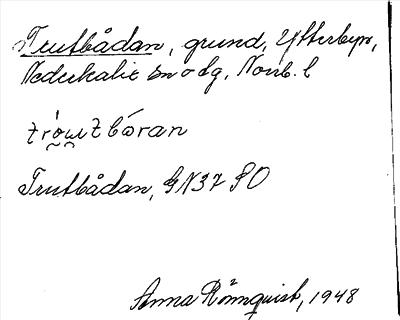 Trutbådan, grund, Ytterbyn,
Nederkalix sn o tg, Norrb. l
Trutbådan, GN37 SO
Anna Rönnquist, 1948